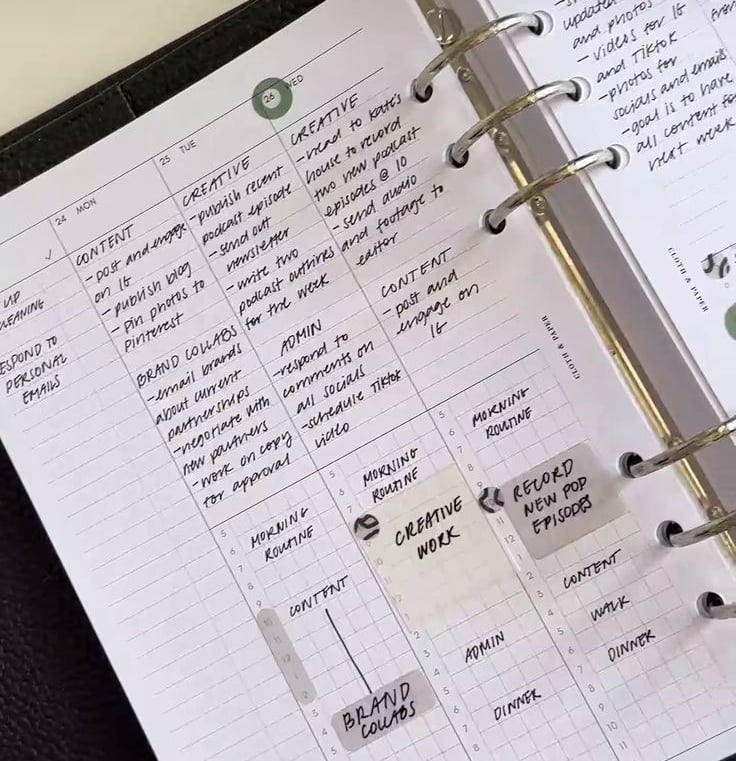 ✓
UP
CLEANING
RESPOND TO
PERSONAL
EMAILS
24 MON
CONTENT
- post and engage
on IG
- publish blog
- pin photos to
Pinterest
BRAND COLLABS
- email brands
about current
partnerships
- negotiate with
new partners
- work on copy
for approval
5
6 MORNING
7 ROUTINE
8
9 CONTENT
10
11
12
1
2
3 BRAND
4 COLLABS
5
25 TUE
CREATIVE
- publish recent
podcast episode
- send out
newsletter
- write two
podcast outlines
for the week
ADMIN
- respond to
comments on
all socials
- schedule TikTok
video
5
6 MORNING
7 ROUTINE
CREATIVE
WORK
10
11
12
1
2
3 ADMIN
4
5
6 DINNER
7
8
26 WED
CREATIVE
- head to Kate's
house to record
two new podcast
episodes @ 10
- send audio
and footage to
editor
CONTENT
- post and
engage on
IG
5
6 MORNING
7 ROUTINE
8
9
RECORD
NEW POD
EPISODES
11
12
1
2
3 CONTENT
4 WALK
5
6 DINNER
7
8
9
10
11
CLOTH & PAPER
update
and photos
- videos for IG
and TikTok
- photos for
socials and emails
- goal is to have
all content for
next week
CLOTH & PAPER